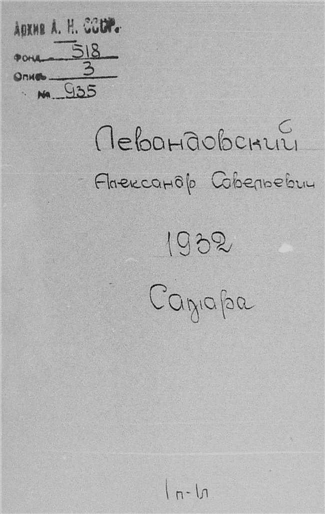 Архив А. Н. СССР.
Фонд 518
Опись 3
№ 935
Левандовский
Александр Савельевич
1932
Самара
1п-1л